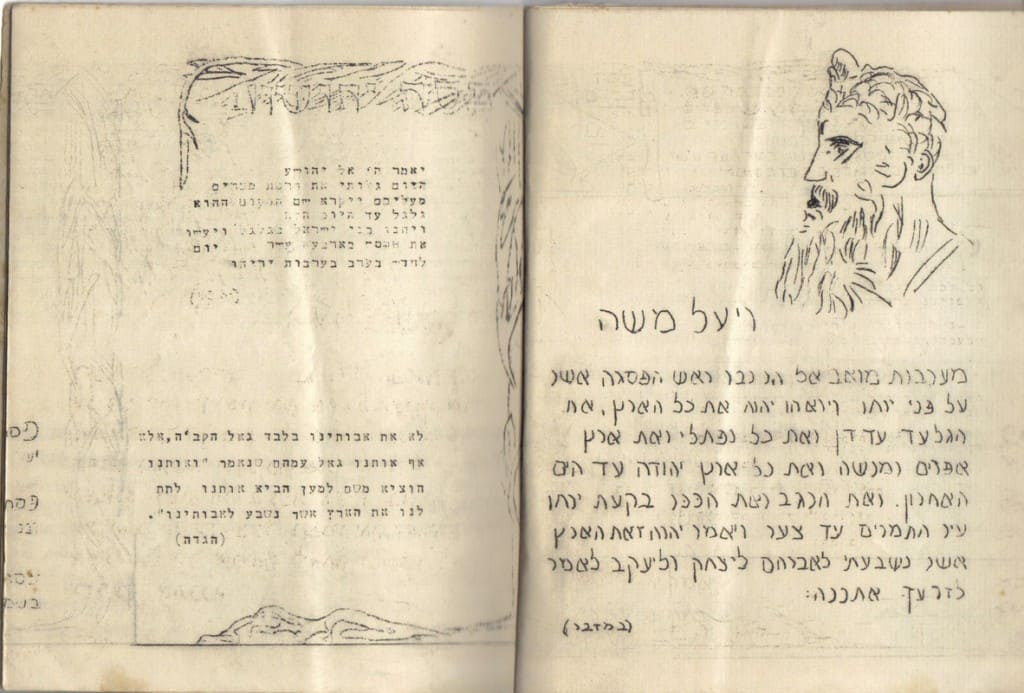 ויעל משה
מערבות מואב אל הר נבו ראש הפסגה אשר
על פני ירחו ויראהו יהוה את כל הארץ, את
הגלעד עד דן ואת כל נפתלי ואת ארץ
אפרים ומנשה ואת כל ארץ יהודה עד הים
האחרון. ואת הנגב ואת הככר בקעת ירחו
עיר התמרים עד צער ויאמר יהוה זאת הארץ
אשר נשבעתי לאברהם ליצחק וליעקב לאמר
לזרעך אתננה:
(במדבר)
יאמר ה' אל יהושע
היום גלותי את חרפת מצרים
מעליכם ויקרא שם המקום ההוא
גלגל עד היום הזה
ויחנו בני ישראל בגלגל ויעשו
את הפסח בארבעה עשר יום
לחדש בערב בערבות יריחו
לא את אבותינו בלבד גאל הקב"ה, אלא
אף אותנו גאל עמהם שנאמר "ואותנו
הוציא משם למען הביא אותנו לתת
לנו את הארץ אשר נשבע לאבותינו".
(הגדה)